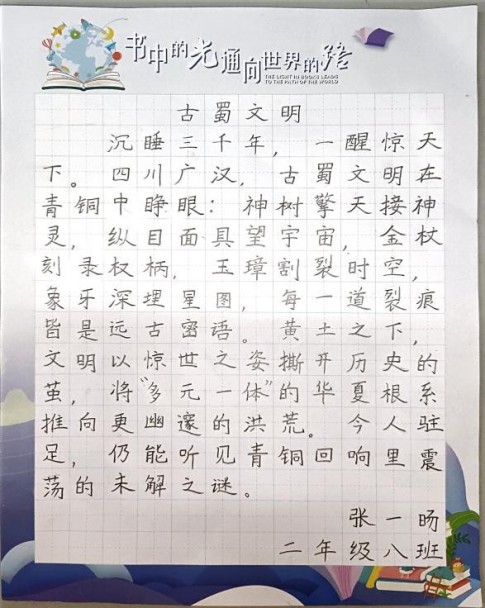 书中的光通向世界的路
THE LIGHT IN BOOKS LEADS
TO THE PATH OF THE WORLD
古蜀文明
沉睡三千年，一醒惊天
下。四川广汉，古蜀文明在
青铜中睁眼：神树擎天接神
灵，纵目面具望宇宙，金杖
刻录权柄，玉璋割裂时空，
象牙深埋星图，每一道裂痕
皆是远古密语。黄土之下，
文明以惊世之姿撕开历史的
茧，将“多元一体”的华夏根系
推向更幽邃的洪荒。今人驻
足，仍能听见青铜回响里震
荡的未解之谜。
张一旸
二年级八班